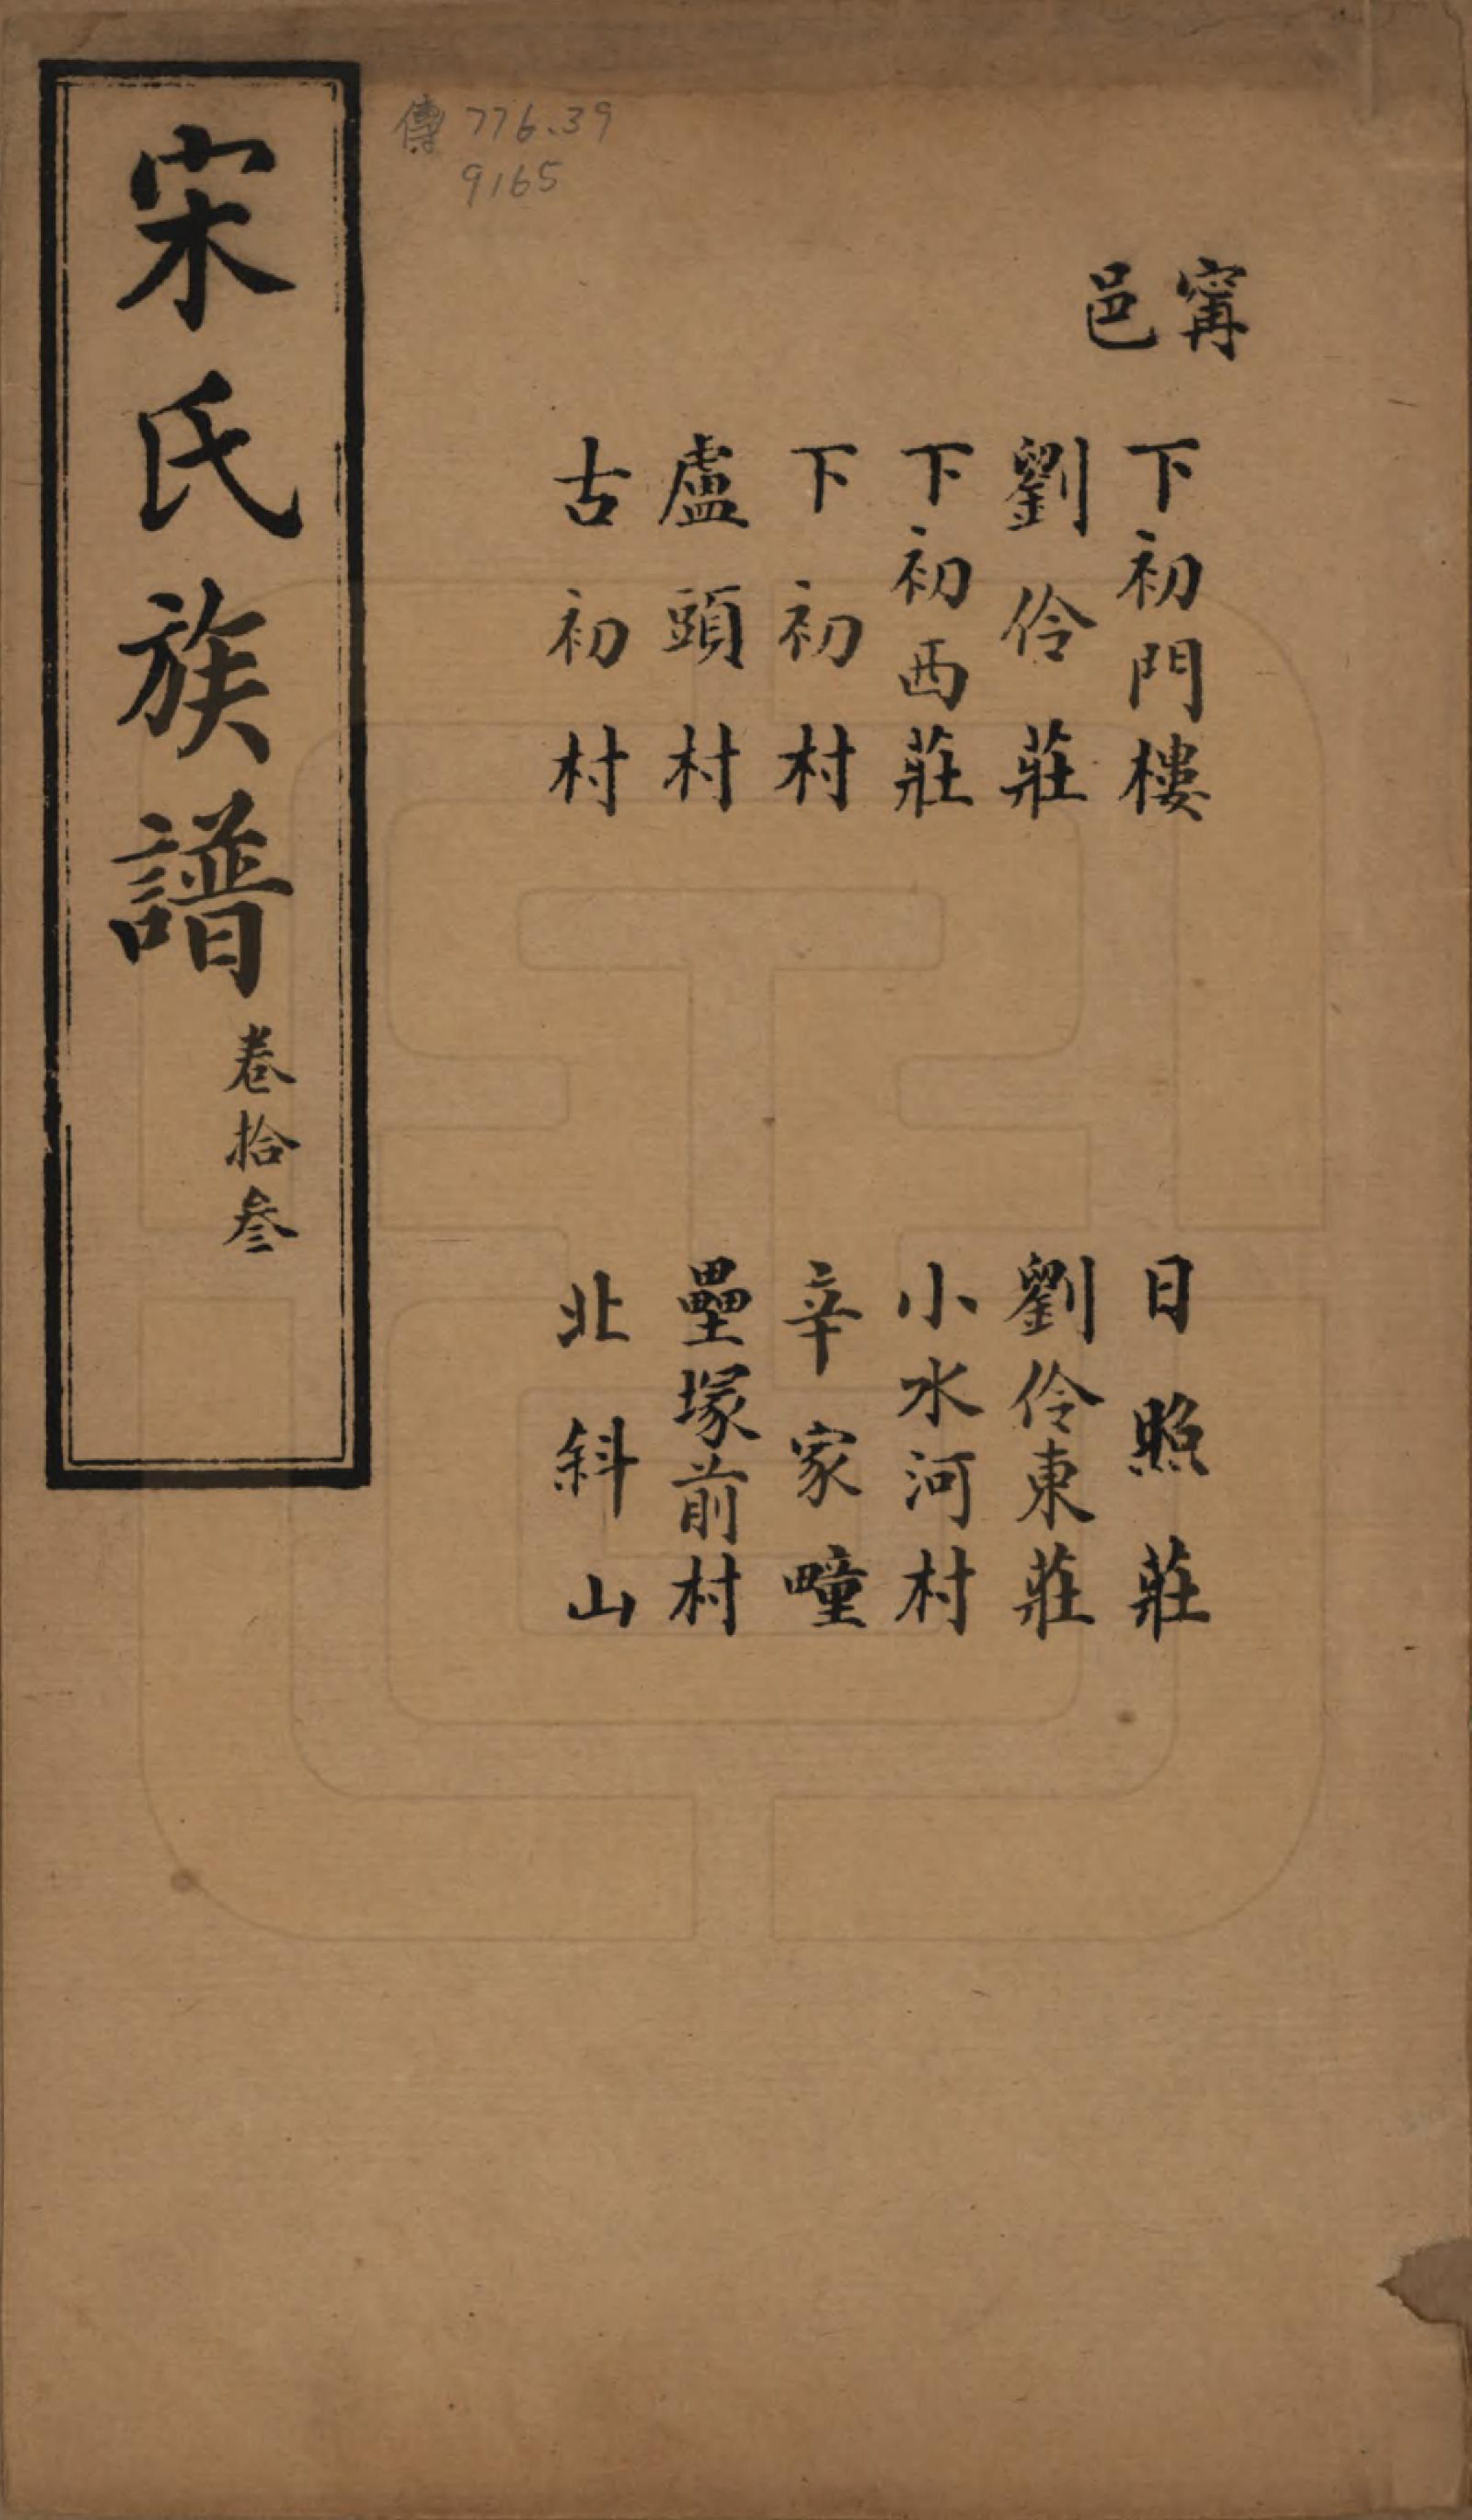 甯邑
下初門樓
劉伶莊
下初西莊
下初村
盧頭村
古初村
日照莊
劉伶東莊
小水河村
辛家疃
壘塚前村
北斜山
傳 776.39
9165
宋氏族譜
卷拾叁